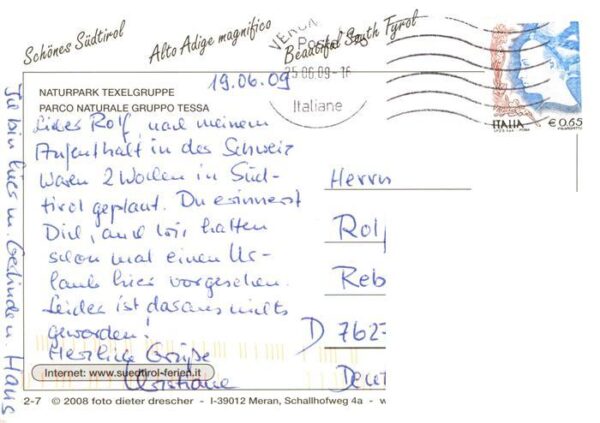 Schönes Südtirol
Alto Adige magnifico
Beautiful South Tyrol
NATURPARK TEXELGRUPPE
PARCO NATURALE GRUPPO TESSA
19.06.09
25.06.09-16
Italiane
ITALIA
€ 0,65
Lieber Rolf, nach meinem
Aufenthalt in der Schweiz
waren 2 Wochen in Süd-
tirol geplant. Du erinnerst
Dich, auch wir hatten
schon mal einen Ur-
laub hier vorgesehen.
Leider ist daraus nichts
geworden!
Herzliche Grüße
Christiane
Ich bin hier m. Gerlinde u. Hans
Herrn
Rolf
Reb
D 762
Deut
Internet: www.suedtirol-ferien.it
2-7 © 2008 foto dieter drescher - I-39012 Meran, Schallhofweg 4a -